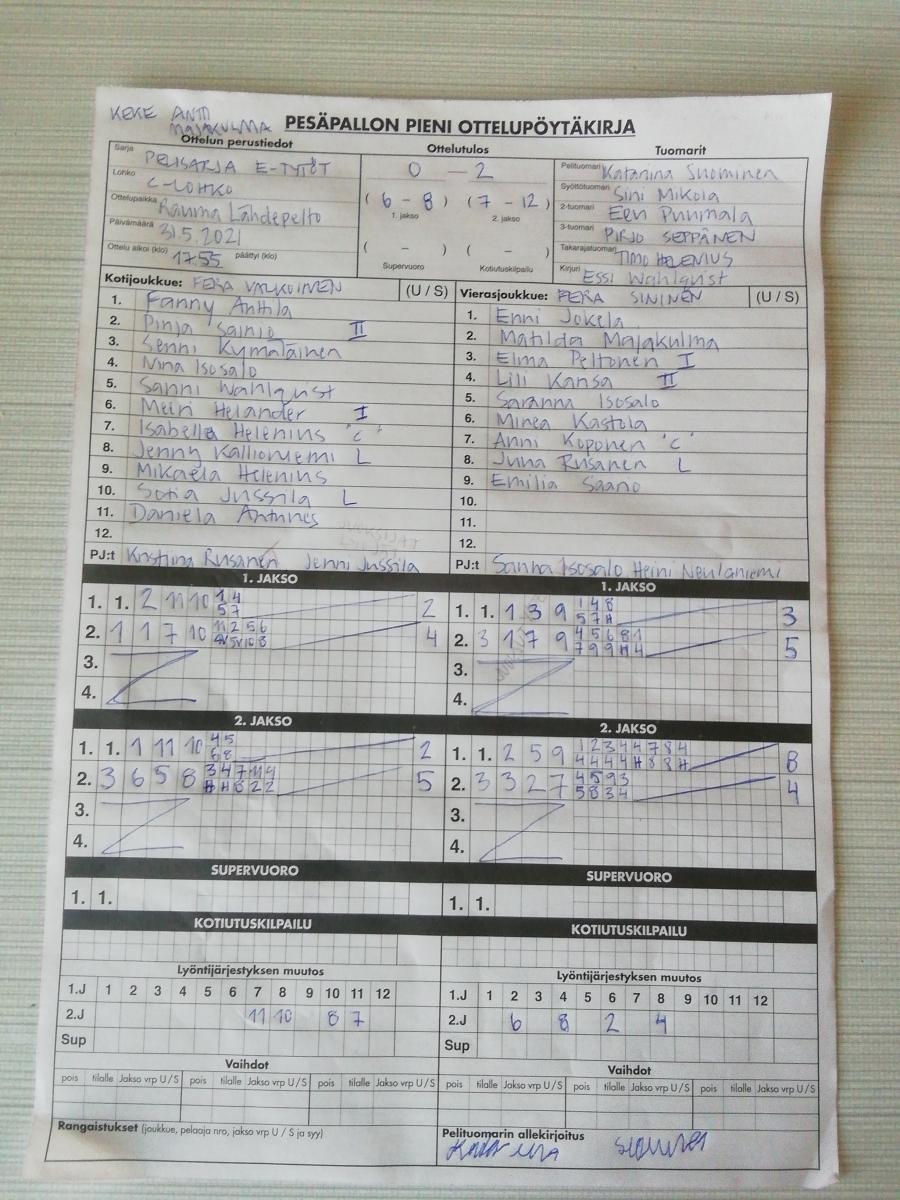 KEKE ANTTI
MAJAKULMA
PESÄPALLON PIENI OTTELUPÖYTÄKIRJA
Ottelun perustiedot Ottelutulos Tuomarit
Sarja PELISARJA E-TYTÖT
Lohko C-LOHKO
Ottelupaikka Rauma Lähdepelto
Päivämäärä 31.5.2021
Ottelu alkoi (klo) 17.55 päättyi (klo)
0 - 2
( 6 - 8 ) ( 7 - 12 )
1. jakso 2. jakso
( - ) ( - )
Supervuoro Kotiutuskilpailu
Pelituomari Katariina Suominen
Syöttötuomari Sini Mikola
2-tuomari Eeri Punmala
3-tuomari PIRJO SEPPÄNEN
Takarajatuomari TIMO HELENIUS
Kirjuri Essi Wahlqvist
Kotijoukkue: FERA VALKOINEN (U / S)
1. Fanny Anttila
2. Pinja Sainio II
3. Senni Kymäläinen
4. Nina Isosalo
5. Sanni Wahlqvist
6. Meiri Helander I
7. Isabella Helenius "C"
8. Jenny Kallioniemi L
9. Mikaela Helenius
10. Sofia Jussila L
11. Daniela Antunes
12.
PJ:t Kristiina Rusanen Jenni Jussila
Vierasjoukkue: FERA SININEN (U / S)
1. Enni Jokela
2. Matilda Majakulma
3. Elma Peltonen I
4. Lili Kansa II
5. Saranna Isosalo
6. Minea Kastola
7. Anni Koponen "C"
8. Juna Rusanen L
9. Emilia Saano
10.
11.
12.
PJ:t Sanna Isosalo Heini Neulaniemi
1. JAKSO
1. 1. 2 11 10 1 4
5 7 2
2. 1 1 7 10 11 2 5 6
4 4
3.
4.
1. JAKSO
1. 1. 1 3 9 1 4 8
5 7 H 3
2. 3 1 7 9 4 5 6 8 1
7 9 9 H 4 5
3.
4.
2. JAKSO
1. 1. 1 11 10 4 5
6 8 2
2. 3 6 5 8 3 4 7 11 9
H H 8 2 2 5
3.
4.
2. JAKSO
1. 1. 2 5 9 1 2 3 4 4 7 8 4
4 4 4 4 H 8 8 H 8
2. 3 3 2 7 4 5 9 3
5 8 3 4 4
3.
4.
SUPERVUORO
1. 1.
SUPERVUORO
1. 1.
KOTIUTUSKILPAILU
KOTIUTUSKILPAILU
Lyöntijärjestyksen muutos
1.J 1 2 3 4 5 6 7 8 9 10 11 12
2.J 11 10 8 7
Sup
Lyöntijärjestyksen muutos
1.J 1 2 3 4 5 6 7 8 9 10 11 12
2.J 6 8 2 4
Sup
Vaihdot
pois tilalle Jakso vrp U / S pois tilalle Jakso vrp U / S pois tilalle Jakso vrp U / S
Vaihdot
pois tilalle Jakso vrp U / S pois tilalle Jakso vrp U / S pois tilalle Jakso vrp U / S
Rangaistukset (joukkue, pelaaja nro, jakso vrp U / S ja syy)
Pelituomarin allekirjoitus